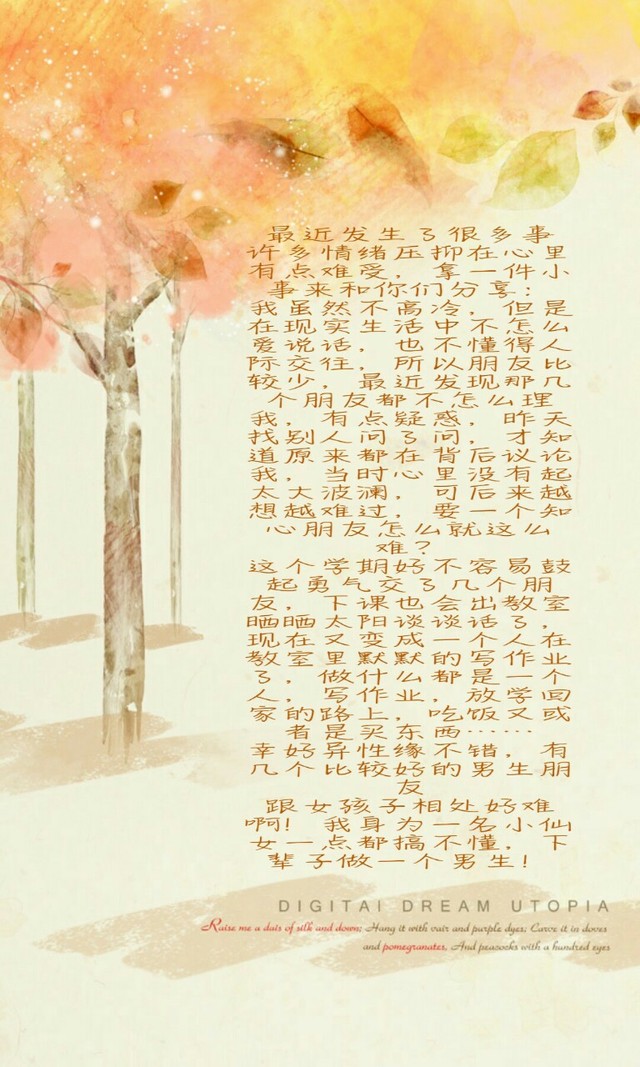 最近发生了很多事
许多情绪压抑在心里
有点难受，拿一件小
事来和你们分享：
我虽然不高冷，但是
在现实生活中不怎么
爱说话，也不懂得人
际交往，所以朋友比
较少，最近发现那几
个朋友都不怎么理
我，有点疑惑，昨天
找别人问了问，才知
道原来都在背后议论
我，当时心里没有起
太大波澜，可后来越
想越难过，要一个知
心朋友怎么就这么
难？
这个学期好不容易鼓
起勇气交了几个朋
友，下课也会出教室
晒晒太阳谈谈话了，
现在又变成一个人在
教室里默默的写作业
了，做什么都是一个
人，写作业，放学回
家的路上，吃饭又或
者是买东西……
幸好异性缘不错，有
几个比较好的男生朋
友
跟女孩子相处好难
啊！我身为一名小仙
女一点都搞不懂，下
辈子做一个男生！
DIGITAI DREAM UTOPIA
Raise me a dais of silk and down; Hang it with vair and purple dyes; Carve it in doves
and pomegranates, And peacocks with a hundred eyes